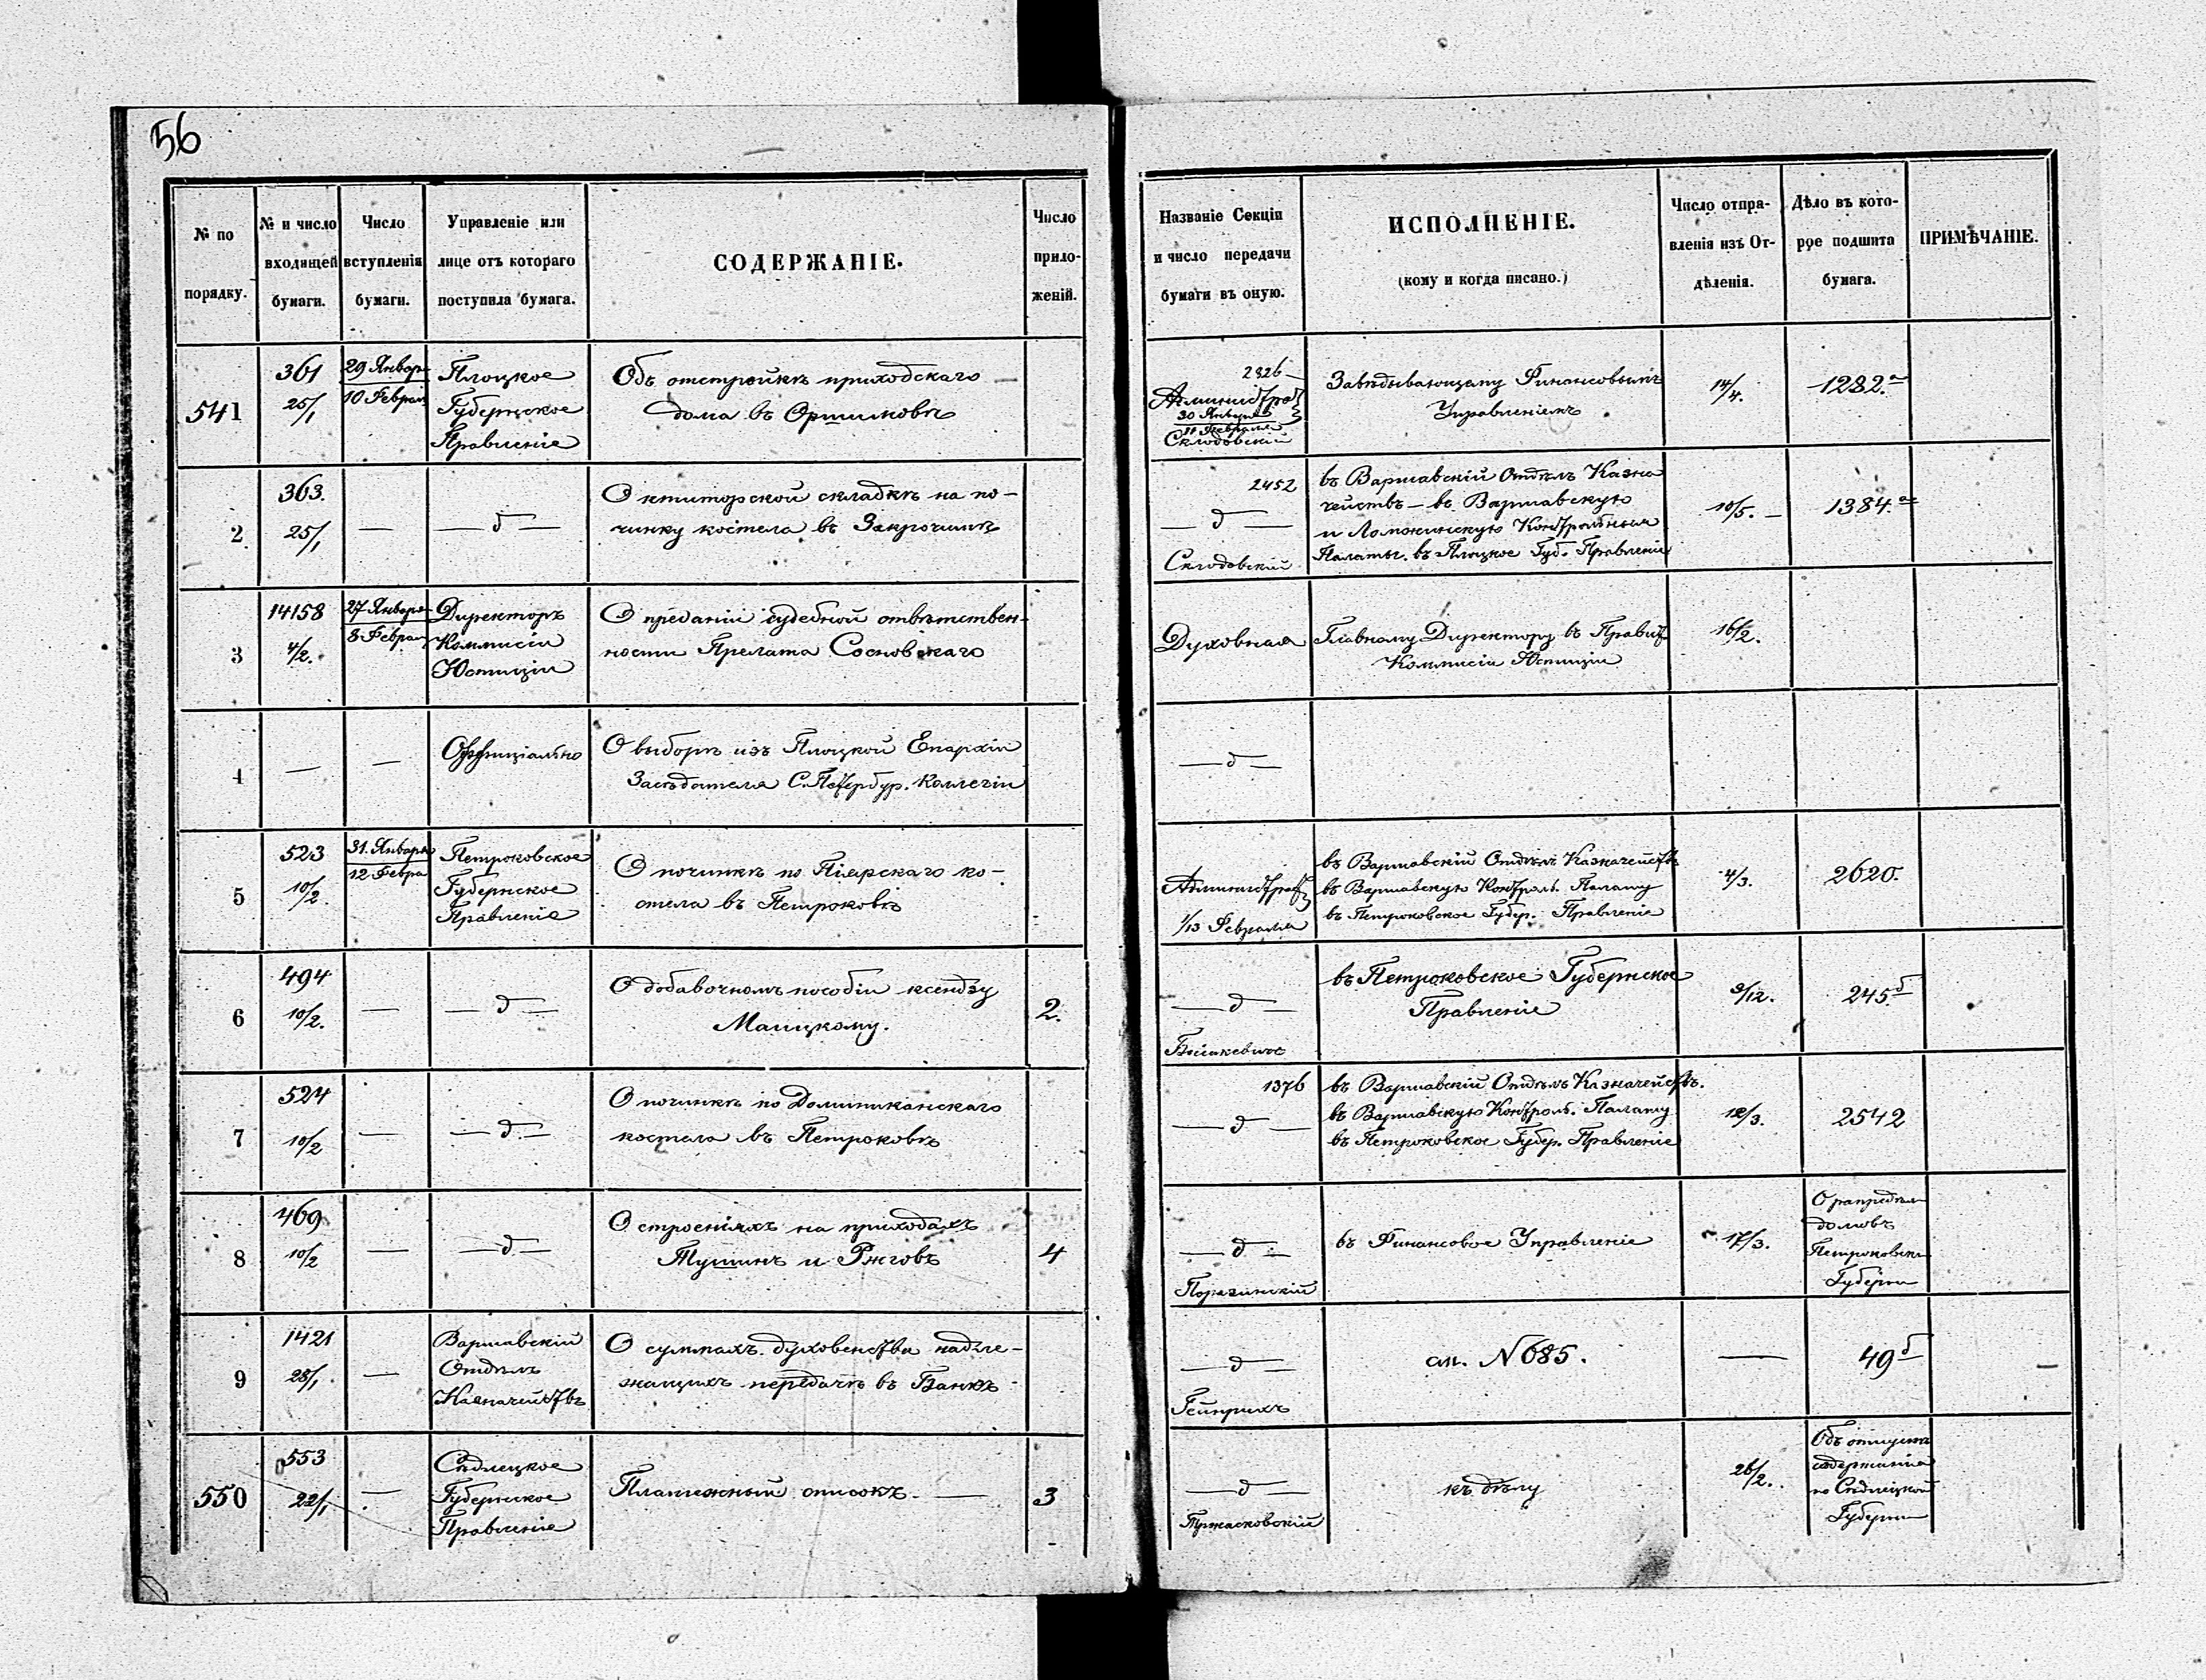 56
№ по порядку.
№ и число входящей бумаги.
Число вступленія бумаги.
Управленіе или лице отъ котораго поступила бумага.
СОДЕРЖАНІЕ.
Число приложеній.
Названіе Секціи и число передачи бумаги въ оную.
ИСПОЛНЕНІЕ.
(кому и когда писано.)
Число отправленія изъ Отдѣленія.
Дѣло въ которое подшита бумага.
ПРИМѢЧАНІЕ.
541
361
25/1
29 Январ
10 Феврал
Плоцкое
Губернское
Правленіе
Объ отстройкѣ приходскаго
дома въ Оршимовѣ
2826
Администрат
30 Января
11 Февраля
Склодовскій
Завѣдывающему Финансовымъ
Управленіемъ
14/4.
1282.а
2
363.
25/1
—
— д —
О ктиторской складкѣ на по-
чинку костела въ Закрочимѣ
2452
— д —
Склодовскій
въ Варшавскій Отдѣлъ Казна
чействъ — въ Варшавскую
и Ломжинскую Контрольныя
Палаты. въ Плоцкое Губ. Правленіе
10/5. —
1384.а
3
14158
4/2.
27 Января
8 Феврал
Директоръ
Коммисіи
Юстиціи
О преданіи судебной отвѣтствен-
ности Прелата Сосновскаго
Духовная
Главному Директору въ Правит.
Коммисіи Юстиціи
16/2.
4
—
—
Оффиціально
О выборѣ изъ Плоцкой Епархіи
Засѣдателя С. Петербур. Коллегіи
— д —
5
523
10/2
31. Января
12 Февра
Петроковское
Губернское
Правленіе
О починкѣ по Піярскаго ко-
стела въ Петроковѣ
Администрат
1/13 Февраля
въ Варшавскій Отдѣлъ Казначействъ
въ Варшавскую Контрол. Палату
въ Петроковское Губер. Правленіе
4/3.
2620.
6
494
10/2.
—
— д —
О добавочномъ пособіи ксендзу
Малицкому.
2.
— д —
въ Петроковское Губернское
Правленіе
9/12.
245б
7
524
10/2
—
— д —
О починкѣ по Доминиканскаго
костела въ Петроковѣ
1376
— д —
въ Варшавскій Отдѣлъ Казначействъ.
въ Варшавскую Контрол. Палату
въ Петроковское Губер. Правленіе
12/3.
2542
8
469
10/2
—
— д —
О строеніяхъ на приходахъ
Тушинъ и Ржговъ
4
— д —
въ Финансовое Управленіе
17/3.
домовъ
Петроковск
Губерніи
9
1421
28/1
—
Варшавскій
Отдѣлъ
Казначействъ
О суммахъ духовенства надле-
жащихъ передачѣ въ Банкъ
— д —
Гейнрихъ
см. N 685.
—
49б
550
553
22/1
—
Сѣдлецкое
Губернское
Правленіе
Платежный списокъ —
3
— д —
Тржасковскій
къ дѣлу
26/2.
Объ отпускѣ
содержанія
по Сѣдлецкой
Губерніи